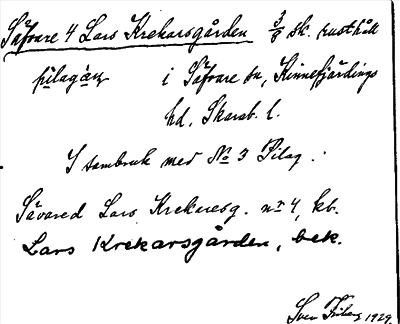 Såfvare 4 Lars Krekarsgården 3/8 sk. rusthåll
i Såfvare sn, Kinnefjärdings
hd, Skarab. l.
I sambruk med No 3 Pilag.
Såvared Lars Krekaresg. nr 4, kb.
Lars Krekarsgården, bek.
Sven 1929.